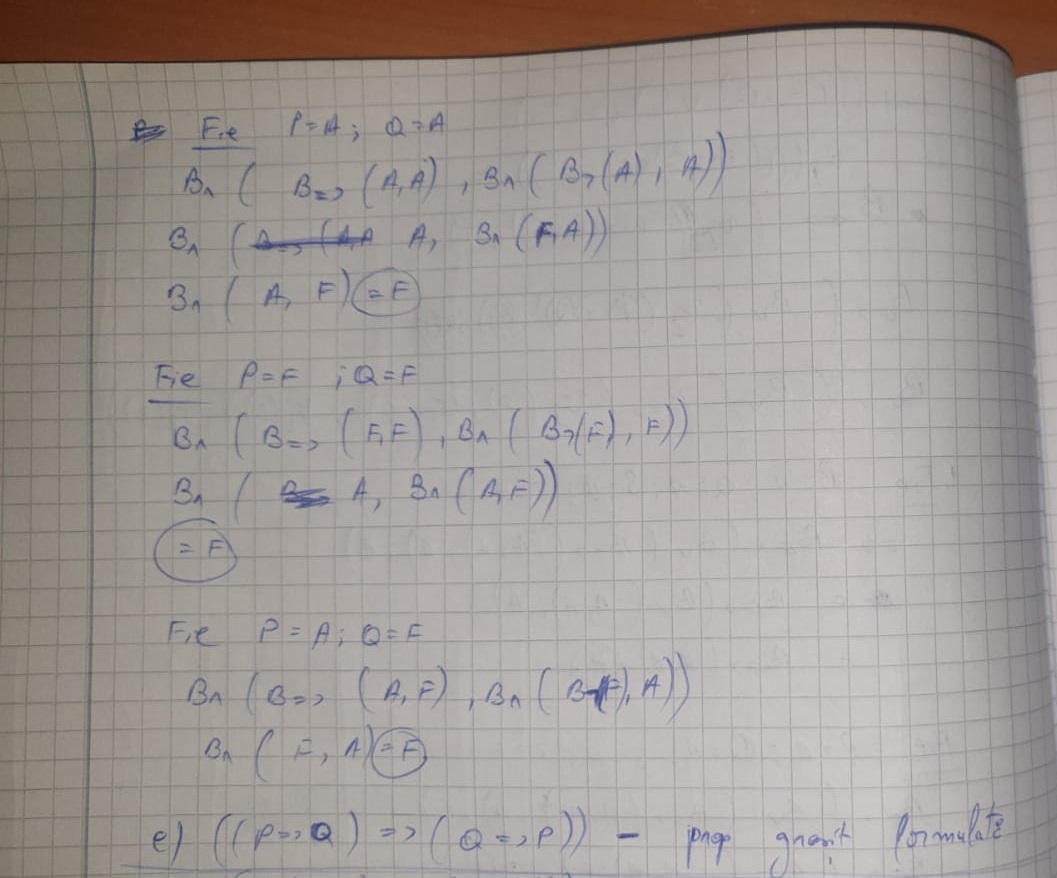 Fie P=A; Q=A
B∧ ( B=> (A,A) , B∧ ( B¬(A) , A))
B∧ ( A, B∧ (F,A))
B∧ ( A, F) = F
Fie P=F ; Q=F
B∧ ( B=> (F,F) , B∧ ( B¬(F) , F))
B∧ ( A, B∧ (A,F))
= F
Fie P = A; Q=F
B∧ ( B=> (A,F) , B∧ ( B¬(F), A))
B∧ ( F, A) = F
e) ((P=>Q) => (Q=>P)) - prop formulate